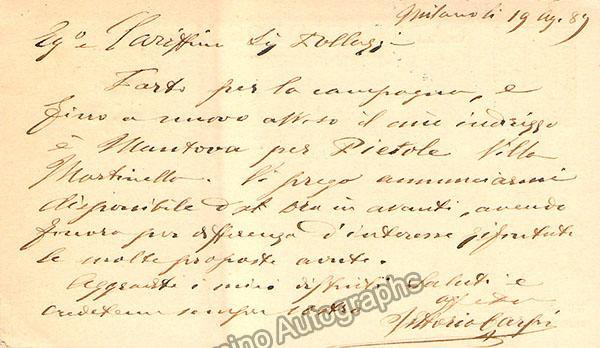 Milano li 19 ag. 89
Eg.o e Sig.
Parto per la campagna, e
fino a nuovo avviso il mio indirizzo
è Mantova per Pietole Villa
Martinella. Vi prego annunciarmi
disponibile d'ora in avanti, avendo
finora per differenza d'interesse rifiutate
le molte proposte avute.
Aggradite i miei distinti saluti e
credetemi sempre vostro
Vittorio Carpi
Tamino Autographs